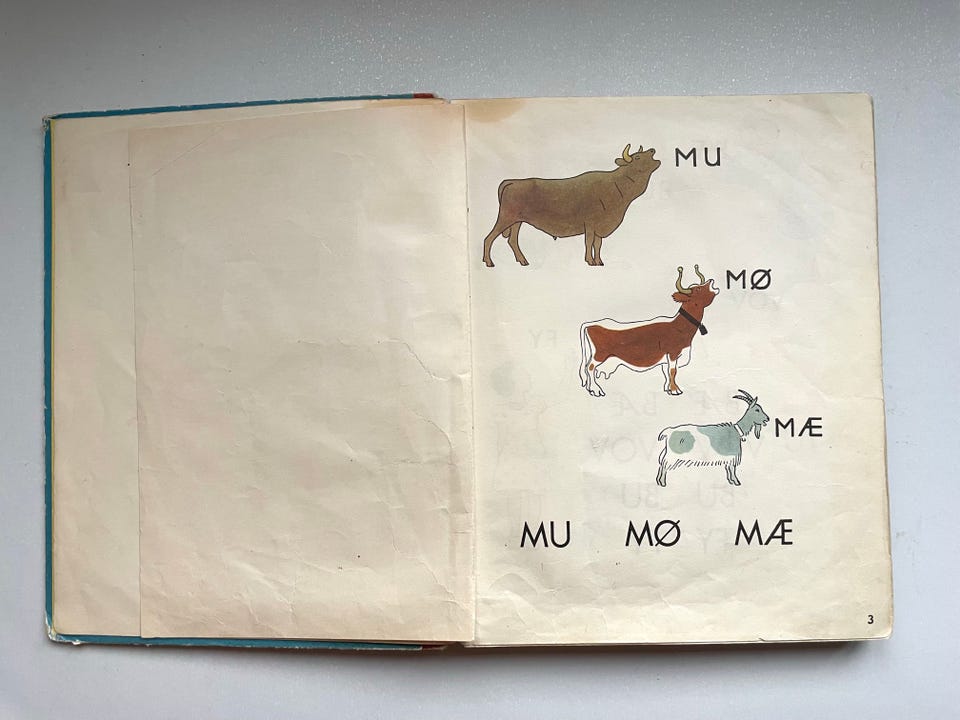 MU
MØ
MÆ
MU MØ MÆ
3